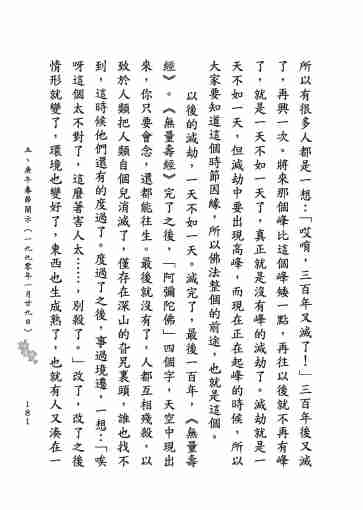 所以有很多人都是一想：「哎唷，三百年又滅了！」三百年後又滅
了，再興一次。將來那個峰比這個峰矮一點，再往以後就不再有峰
了，就是一天不如一天了。真正就是沒有峰的滅劫了。滅劫就是一
天不如一天，但滅劫中要出現高峰，而現在正在起峰的時候，所以
大家要知道這個時節因緣，所以佛法整個的前途，也就是這個。
以後的滅劫，一天不如一天。滅完了，最後一百年，《無量壽
經》。《無量壽經》完了之後，「阿彌陀佛」四個字，天空中現出
來，你只要會念，還都能往生。最後就沒有了，人都互相殘殺，以
致於人類把人類自個兒消滅了，僅存在深山的旮旯裏頭，誰也找不
到，這時候他們還有的度過了。度過了之後，事過境遷，一想：「唉
呀這個太不對了，這麼著害人太……，別殺了。」改了，改了之後
情形就變了，環境也變好了，東西也生成熟了，也就有人又湊在一
五、庚午春節開示（一九九零年一月廿九日）
181